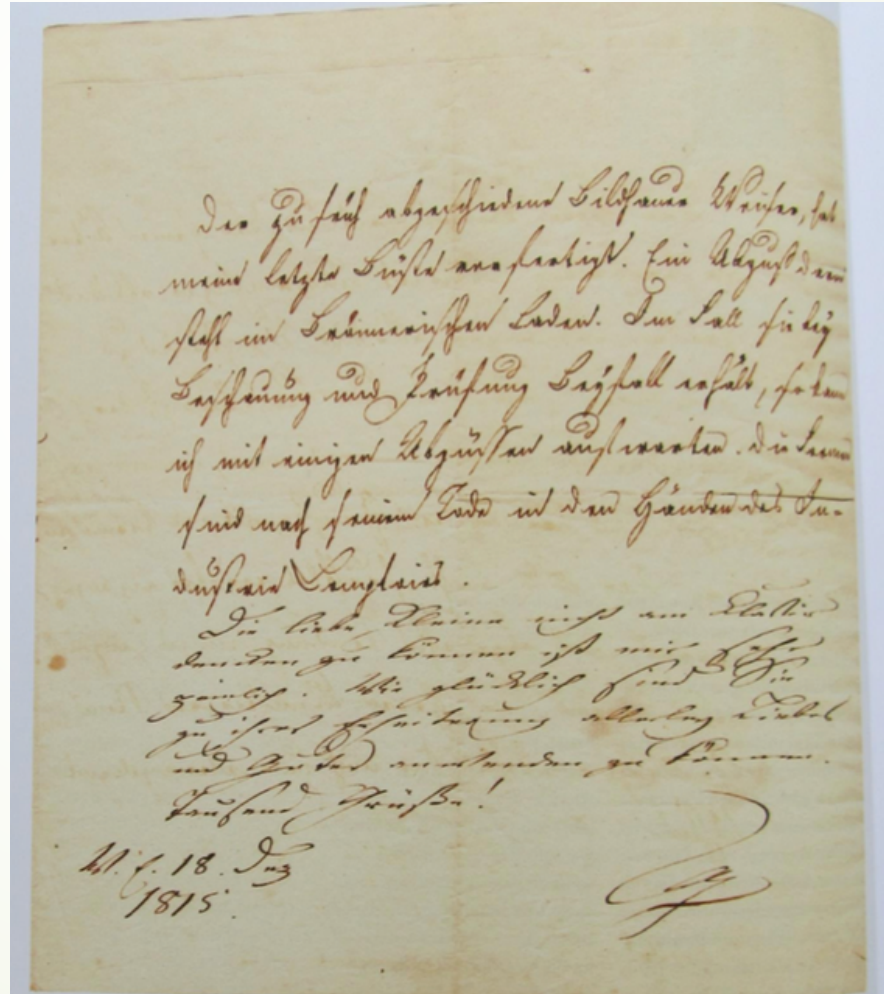 Der zu früh abgeschiedene Bildhauer Weißer, hat
meine letzte Büste verfertigt. Ein Abguß davon
steht im Brönnerischen Laden. Im Fall sie bey
Beschauung und Prüfung Beyfall erhält, so kann
ich mit einigen Abgüssen aufwarten. Die Formen
sind nach seinem Tode in den Händen des In-
dustrie Comptoirs.
Die liebe Kleine nicht am Clavier
dencken zu können ist mir sehr
peinlich. Wie glücklich sind Sie
zu ihrer Erheiterung allerley Liebes
und Gutes anwenden zu können.
Tausend Grüße!
W. d. 18. Dez
1815.
G